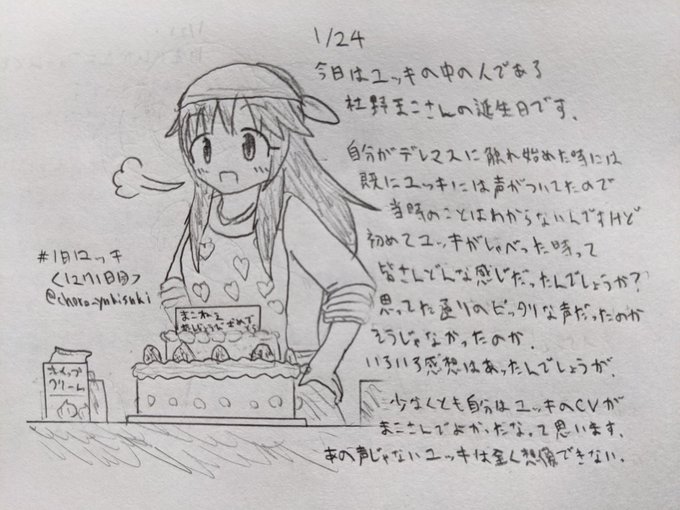 1/24
今日はユッキの中の人である
杜野まこさんの誕生日です。
自分がデレマスに触れ始めた時には
既にユッキには声がついてたので
当時のことはわからないんですけど
初めてユッキがしゃべった時って
皆さんどんな感じだったんでしょうか?
思ってた通りのピッタリな声だったのか
そうじゃなかったのか、
いろいろ感想はあったんでしょうが、
少なくとも自分はユッキのCVが
まこさんでよかったなって思います。
あの声じゃないユッキは全く想像できない。
#1日1ユッキ
<1271日目>
@choro_yukisuki
まこねえ
おたんじょうびおめでとう
ホイップ
クリーム